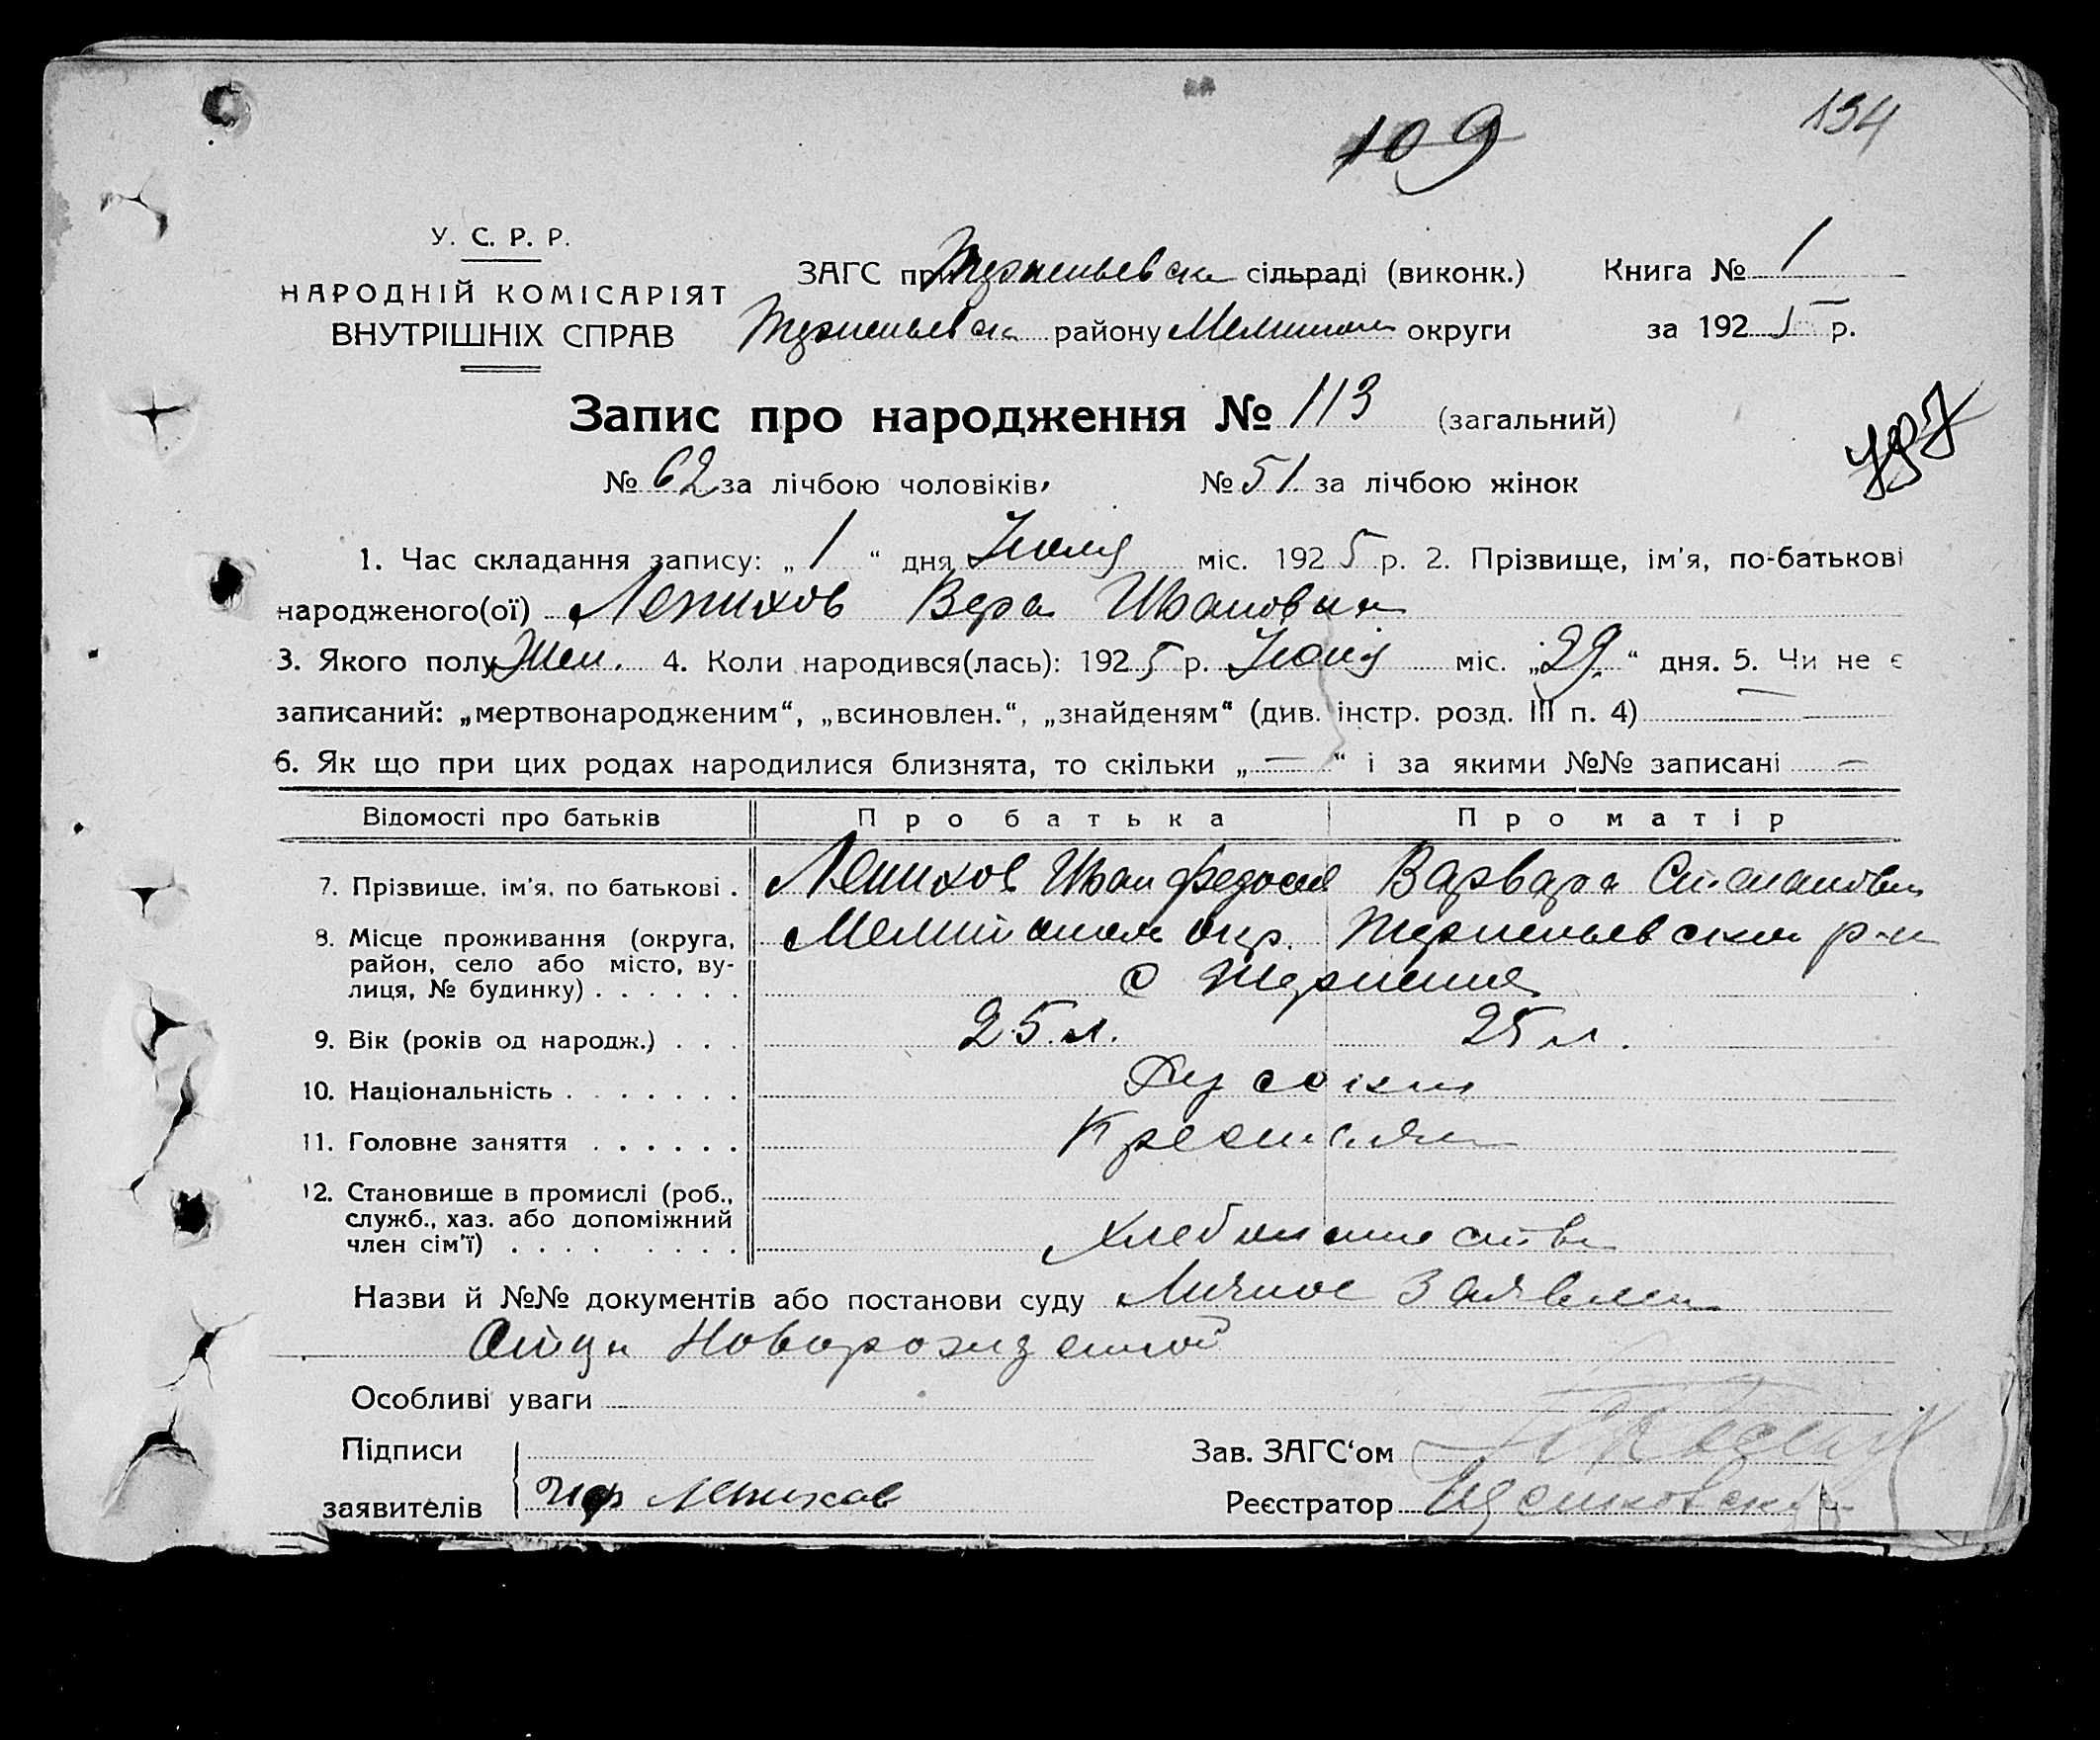 109
194
У. С. Р. Р.
НАРОДНІЙ КОМІСАРІЯТ
ВНУТРІШНІХ СПРАВ
ЗАГС при Терпеньевск сільраді (виконк.)
Книга № 1
Терпеньевск району Мелитоп округи
за 1925 р.
Запис про народження № 113 (загальний)
№ 62 за лічбою чоловіків, № 51 за лічбою жінок
1. Час складання запису: „ 1 “ дня Июля міс. 1925 р. 2. Прізвище, ім'я, по-батькові
народженого(ої) Лепихов Вера Ивановна
3. Якого полу Жен. 4. Коли народився(лась): 1925 р. міс. „29.“ дня. 5. Чи не є
записаний: „мертвонародженим“, „всиновлен.“, „знайденям“ (див. інстр. розд. III п. 4) —
6. Як що при цих родах народилися близнята, то скільки „ — “ і за якими №№ записані —
Відомості про батьків
Про батька
Про матір
7. Прізвище, ім'я, по батькові . Лепихов Иван Варвара Степановна
8. Місце проживання (округа, Мелитополь окр. Терпеньевском р-н
район, село або місто, ву-
лиця, № будинку) . . . . . . с Терпение
9. Вік (років од народж.) . . . 25 л. 25 л.
10. Національність . . . . . . . Русские
11. Головне заняття . . . . . . Крестьян
12. Становище в промислі (роб.,
служб., хаз. або допоміжний
член сім'ї) . . . . . . . . Хлебопашество
Назви й №№ документів або постанови суду Личное Заявлен
Отца Новорожденной
Особливі уваги
Підписи
заявителів
Лепихов
Зав. ЗАГС‘ом
Реєстратор